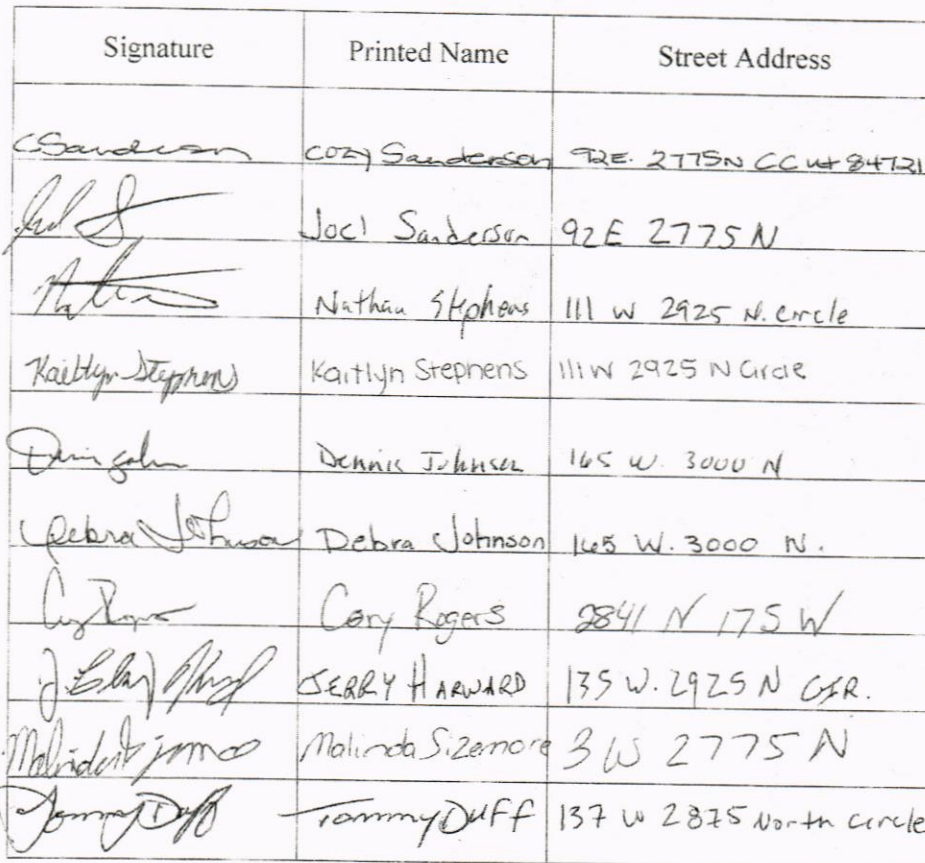 Signature Printed Name Street Address
CSanderson Cozy Sanderson 92E. 2775N CC ut 84721
Joel Sanderson 92E 2775 N
Nathan Stephens 111 W 2925 N. Circle
Kaitlyn Stephens Kaitlyn Stephens 111 W 2925 N Circle
Dennis Johnson 165 W. 3000 N
Debra Johnson Debra Johnson 165 W. 3000 N.
Cory Rogers 2841 N 175 W
JERRY HARWARD 135 W. 2925 N CIR.
Malinda Sizemore 3 W 2775 N
Tommy Duff Tommy Duff 137 W 2875 North Circle